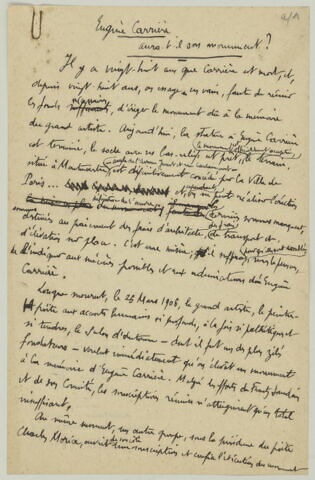 Eugène Carrière
aura-t-il son monument ?
Il y a vingt-huit ans que Carrière est mort, et,
depuis vingt-huit ans, on essaye en vain, faute de réunir
les fonds nécessaires, d'ériger le monument dû à la mémoire
du grand artiste. Aujourd'hui, la statue d'Eugène Carrière
est terminée, le socle avec un bas-relief est prêt, le terrain,
situé à Montmartre, est définitivement concédé par la Ville de
Paris...
destinés au paiement des frais d'architecte, de transport et
d'élévation sur place. C'est une misère; il suffirait,
de l'indiquer aux mécènes possibles et aux admirateurs d'Eugène
Carrière.
Lorsque mourut, le 26 Mars 1906, le grand artiste, le peintre-
poète aux accents humains si profonds, à la fois si pathétiques et
si tendres, le Salon d'Automne — dont il fut un des plus zélés
fondateurs — voulut immédiatement qu'on élevât un monument
à la mémoire d'Eugène Carrière. Malgré les efforts de Frantz Jourdain
et de son Comité, les souscriptions réunies n'atteignirent qu'un total
insuffisant,
Au même moment, un autre groupe, sous la présidence du poète
Charles Morice, ouvrit une souscription et confia l'exécution du monument